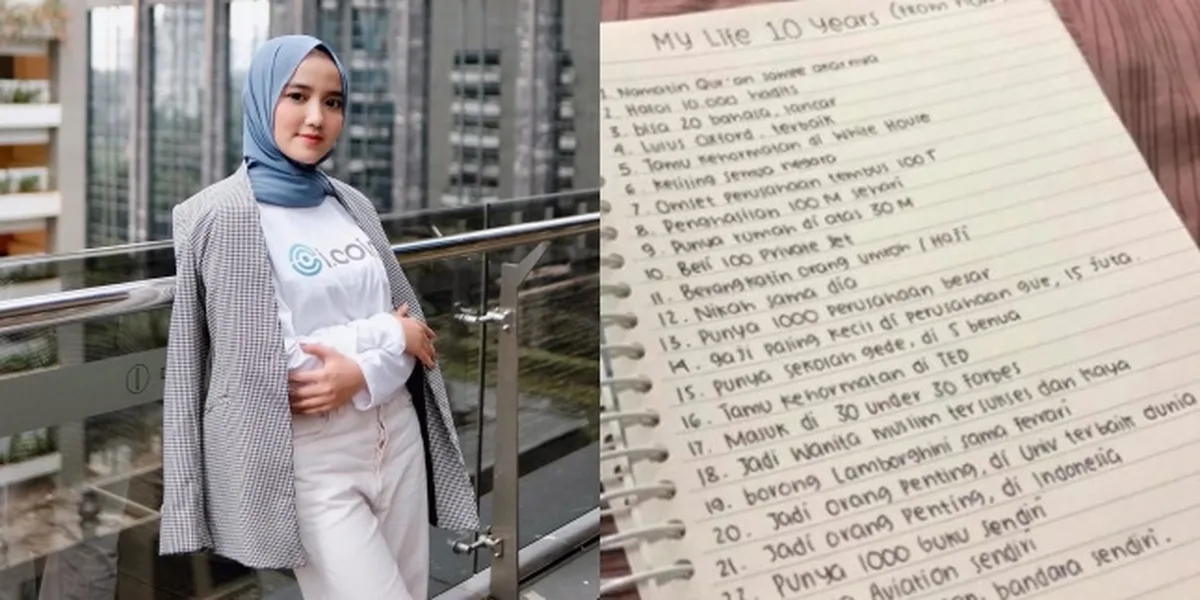 i.coin
My Life 10 Years (From Now)
1. Namatin Qur'an sampe akarnya
2. Hafal 10.000 hadits
3. bisa 20 bahasa, lancar
4. Lulus Oxford. terbaik
5. Tamu kehormatan di White House
6. Keliling semua negara
7. Omset perusahaan tembus 100 T
8. Penghasilan 100 M sehari
9. Punya rumah di atas 30 M
10. Beli 100 Private Jet
11. Berangkatin orang umroh / Haji
12. Nikah sama dia
13. Punya 1000 perusahaan besar
14. gaji paling kecil di perusahaan gue, 15 juta.
15. Punya sekolah gede, di 5 benua
16. Tamu kehormatan di TED
17. Masuk di 30 under 30 Forbes
18. Jadi Wanita muslim tersukses dan kaya
19. borong Lamborghini sama ferrari
20. Jadi orang penting, di Univ terbaik dunia
21. Jadi orang penting, di Indonesia
Punya 1000 buku sendiri
Aviation sendiri
bandara sendiri.